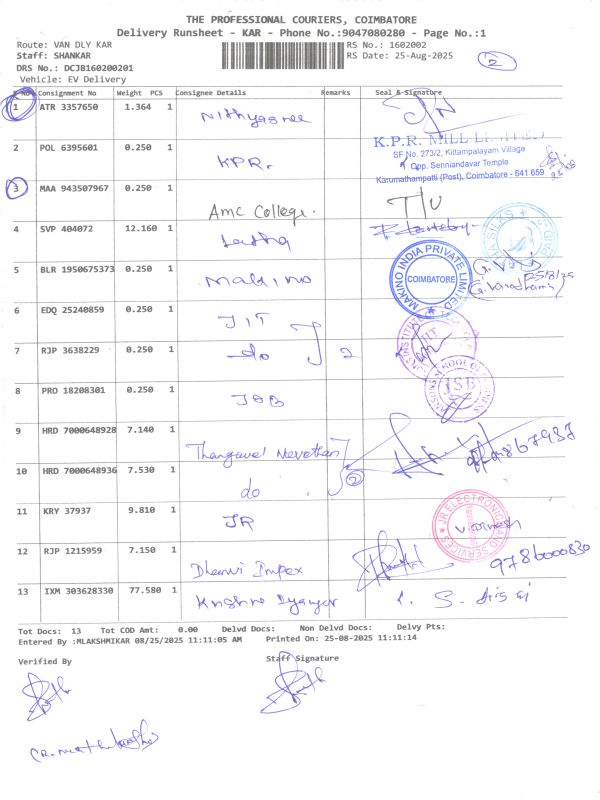 THE PROFESSIONAL COURIERS, COIMBATORE
Delivery Runsheet - KAR - Phone No.:9047080280 - Page No.:1
Route: VAN DLY KAR RS No.: 1602002
Staff: SHANKAR RS Date: 25-Aug-2025
DRS No.: DCJB160200201
2
Vehicle: EV Delivery
NO Consignment No Weight PCS Consignee Details Remarks Seal & Signature
1 ATR 3357650 1.364 1 Nithyasree
2 POL 6395601 0.250 1 KPR.
K.P.R. MILL LIMITED
SF No. 273/2, Kittampalayam Village
Opp. Senniandavar Temple
Karumathampatti (Post), Coimbatore - 641 659
3 MAA 943507967 0.250 1 AMC College.
4 SVP 404072 12.160 1
5 BLR 1950675373 0.250 1 Makino
MAKINO INDIA PRIVATE LIMITED
COIMBATORE
25/8/25
6 EDQ 25240859 0.250 1 JIT
7 RJP 3638229 0.250 1 do 2
8 PRO 18208301 0.250 1 JSB
JSB
9 HRD 7000648928 7.140 1 Thangavel
10 HRD 7000648936 7.530 1 do 2
11 KRY 37937 9.810 1 JR
JR ELECTRONICS AND SERVICES
12 RJP 1215959 7.150 1 Impex
9786000830
13 IXM 303628330 77.580 1
Tot Docs: 13 Tot COD Amt: 0.00 Delvd Docs: Non Delvd Docs: Delvy Pts:
Entered By :MLAKSHMIKAR 08/25/2025 11:11:05 AM Printed On: 25-08-2025 11:11:14
Verified By Staff Signature